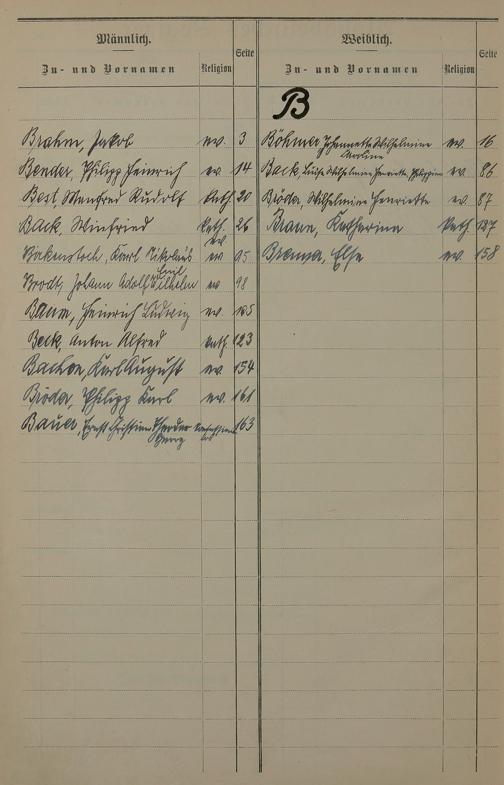 Männlich.
Zu- und Vornamen Religion Seite
Brahm, Jakob ev. 3
Bender, Philipp Heinrich ev. 14
Best, Manfred Rudolf kath. 20
Back, Winfried kath. 26
ev.
Birkenstock, Karl Nikolaus ev 95
Emil
Brodt, Johann Adolf Wilhelm ev 98
Baum, Heinrich Ludwig ev. 105
Beck, Anton Alfred kath. 123
Bachon, Karl August ev. 154
Bröder, Philipp Karl ev. 161
Bauer, Ernst Christian Theodor 163
Georg
Weiblich.
Zu- und Vornamen Religion Seite
B
Böhmer, Johannette Wilhelmine ev. 16
Karoline
Back, Luise Wilhelmine Henriette Philippine ev. 86
Bröder, Wilhelmine Henriette ev. 87
Braun, Katharina kath. 137
Else ev 158